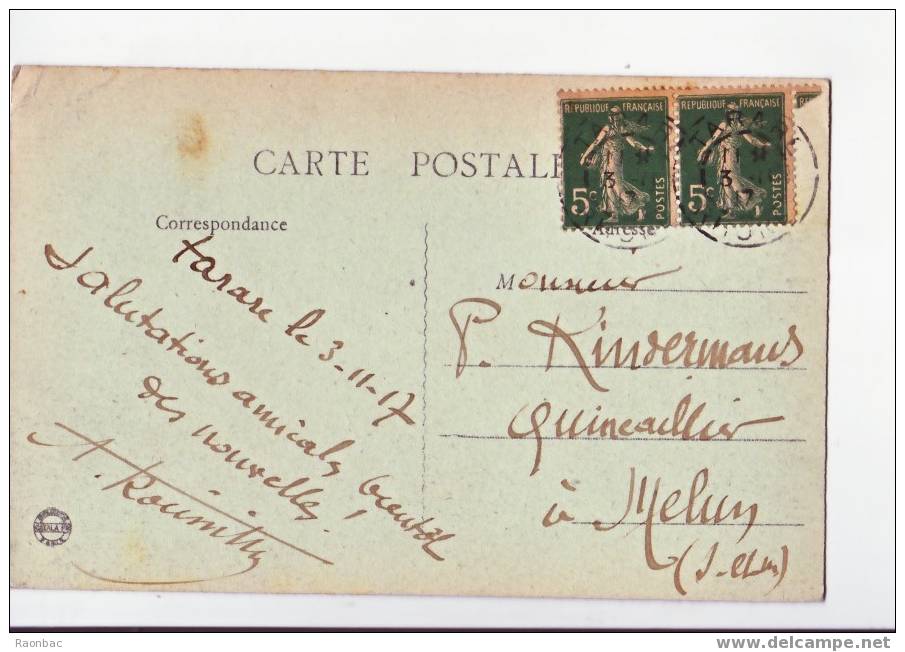 REPUBLIQUE FRANÇAISE
5c POSTES
REPUBLIQUE FRANÇAISE
5c POSTES
CARTE POSTALE
Correspondance
Adresse
tarare le 3-11-17
Salutations amicales bientôt
des nouvelles
Monsieur
P. Kindermans
Quincaillier
à Melun
(S-et-M)
Raonbac
delcampe.net